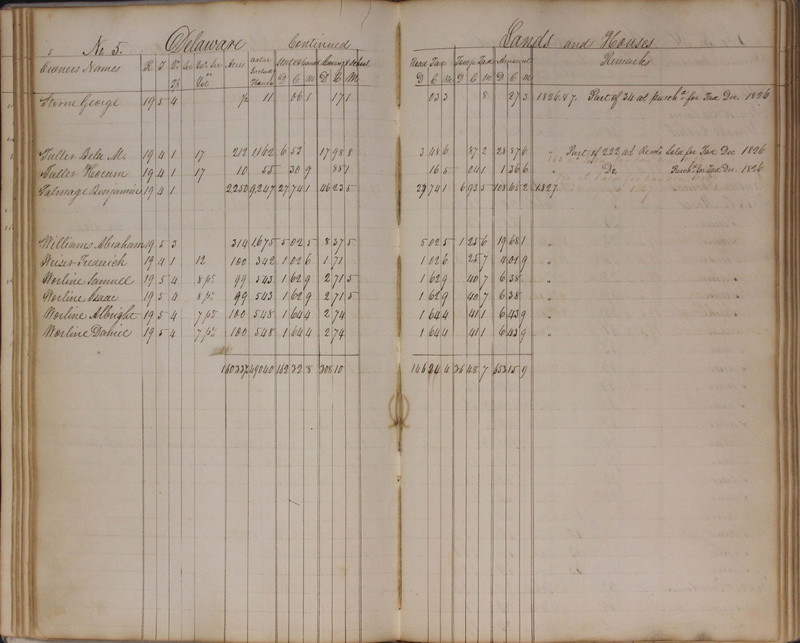 No 5. Delaware Continued Lands and Houses
Owners Names R T Acres Value Include Houses State & Canal County & School Road Tax Towp Tax Amount Remarks
D C M D C M D C M D C M D C M
Sterne George 19 5 4 ½ 11 06 1 17 1 03 3 8 27 3 1826 & 7. Part of 34 at purchd for Tax Dec. 1826
Fuller Bela M. 19 4 1 17 212 1162 6 53 17 98 8 3 48 6 87 2 28 87 6 " Part of 222 acs Remr Sold for Tax Dec 1826
Fuller Hocum 19 4 1 17 10 55 30 9 85 1 16 5 04 1 1 36 6 " Do. Purchd for Tax Dec. 1826
Talmage Benjamin 19 4 1 2250 9,247 27,74 1 46 23 5 27 74 1 6 93 5 108 65 2 1827.
Williams Abraham 19 5 3 314 1,675 5 02 5 8 37 5 5 02 5 1 25 6 19 68 1 "
Weiser Frederick 19 4 1 12 100 342 1 02 6 1 71 1 02 6 25 7 4 01 9 "
Worline Samuel 19 5 4 8 pt 99 543 1 62 9 2 71 5 1 62 9 40 7 6 38 "
Worline Isaac 19 5 4 8 pt 99 543 1 62 9 2 71 5 1 62 9 40 7 6 38 "
Worline Albright 19 5 4 7 pt 100 548 1 64 4 2 74 1 64 4 41 1 6 43 9 "
Worline Daniel 19 5 4 7 pt 100 548 1 64 4 2 74 1 64 4 41 1 6 43 9 "